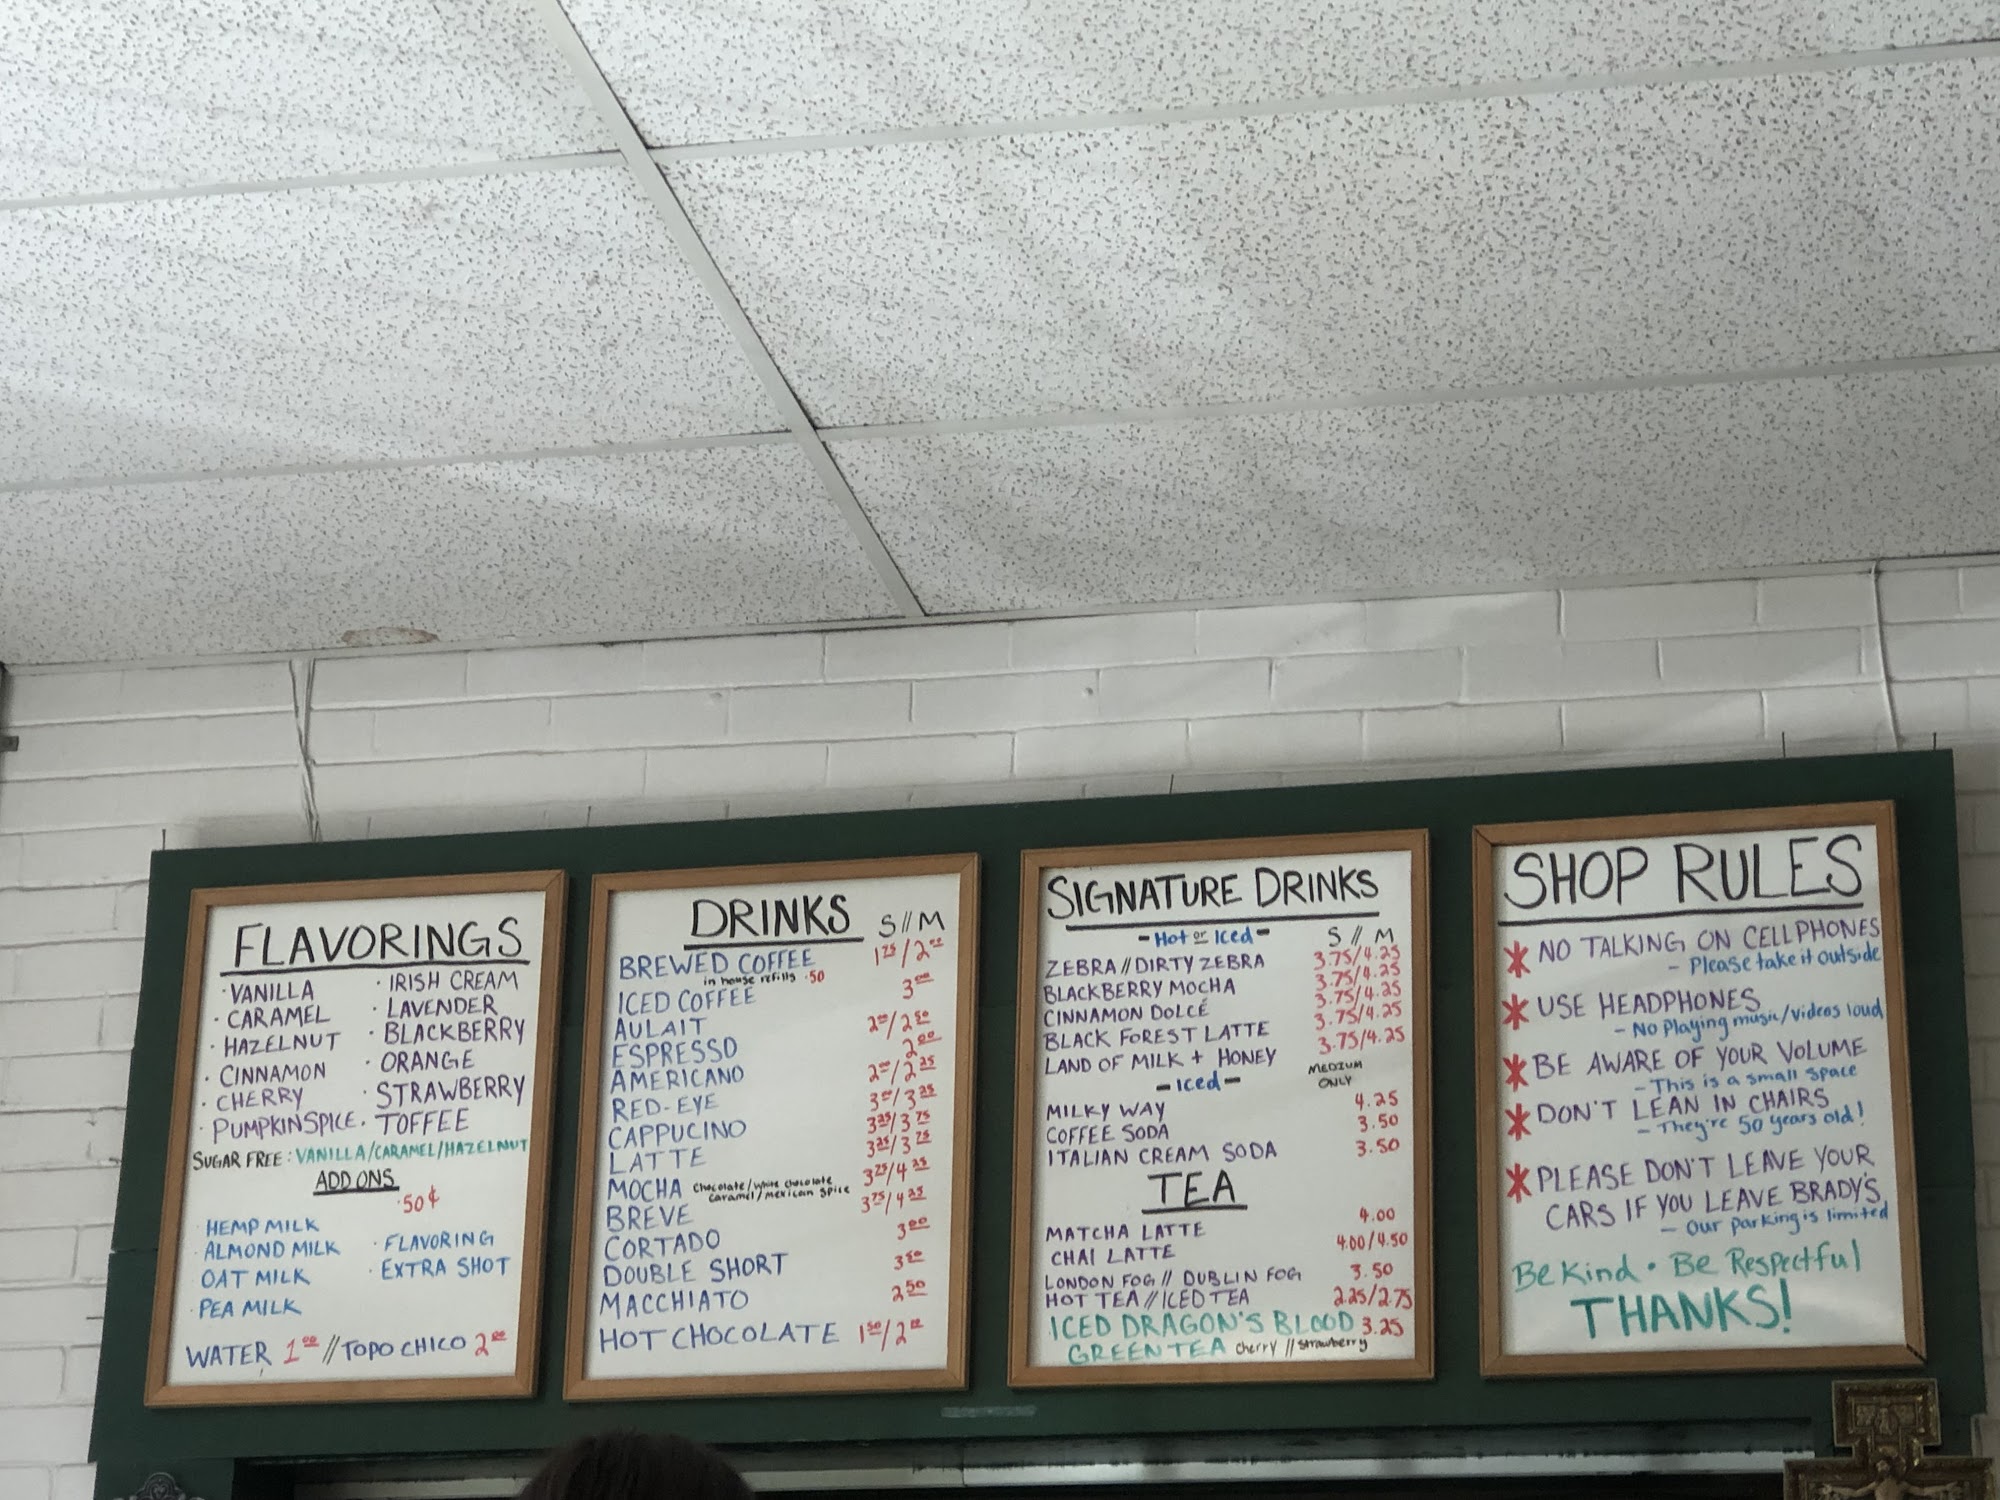 FLAVORINGS
· VANILLA
· CARAMEL
· HAZELNUT
· CINNAMON
· CHERRY
· PUMPKIN SPICE
· IRISH CREAM
· LAVENDER
· BLACKBERRY
· ORANGE
· STRAWBERRY
· TOFFEE
SUGAR FREE: VANILLA/CARAMEL/HAZELNUT
ADD ONS
.50¢
· HEMP MILK
· ALMOND MILK
· OAT MILK
· PEA MILK
· FLAVORING
· EXTRA SHOT
WATER 1.00 // TOPO CHICO 2.00
DRINKS S // M
BREWED COFFEE 1.75/2.00
in house refills .50
ICED COFFEE 3.00
AULAIT 2.00/2.50
ESPRESSO 2.00
AMERICANO 2.00/2.25
RED-EYE 3.00/3.25
CAPPUCINO 3.25/3.75
LATTE 3.25/3.75
MOCHA chocolate/white chocolate 3.75/4.25
caramel/mexican spice
BREVE 3.75/4.25
CORTADO 3.00
DOUBLE SHORT 3.50
MACCHIATO 2.50
HOT CHOCOLATE 1.50/2.00
SIGNATURE DRINKS
- Hot or Iced - S // M
ZEBRA // DIRTY ZEBRA 3.75/4.25
BLACKBERRY MOCHA 3.75/4.25
CINNAMON DOLCÉ 3.75/4.25
BLACK FOREST LATTE 3.75/4.25
LAND OF MILK + HONEY 3.75/4.25
- Iced - MEDIUM ONLY
MILKY WAY 4.25
COFFEE SODA 3.50
ITALIAN CREAM SODA 3.50
TEA
MATCHA LATTE 4.00
CHAI LATTE 4.00/4.50
LONDON FOG // DUBLIN FOG 3.50
HOT TEA // ICED TEA 2.25/2.75
ICED DRAGON'S BLOOD 3.25
GREEN TEA cherry // strawberry
SHOP RULES
* NO TALKING ON CELLPHONES
- Please take it outside
* USE HEADPHONES
- No Playing music/videos loud
* BE AWARE OF YOUR VOLUME
- This is a small space
* DON'T LEAN IN CHAIRS
- They're 50 years old!
* PLEASE DON'T LEAVE YOUR
CARS IF YOU LEAVE BRADY'S
- Our parking is limited
Be Kind · Be Respectful
THANKS!